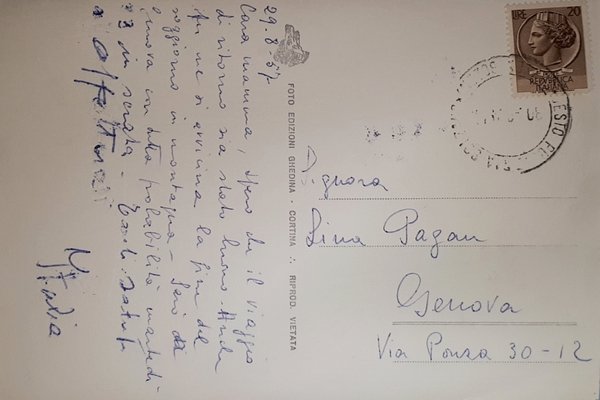 29.8.57
Cara mamma, spero che il viaggio
di ritorno sia stato buono. Anche
per me si avvicina la fine del
soggiorno in montagna - Sarò da
con tutta probabilità martedì
in serata - Tanti saluti
affettuosi
FOTO EDIZIONI GHEDINA - CORTINA ∴ RIPROD. VIETATA
LIRE 20
REPVBBLICA
ITALIANA
Signora
Lina Pagan
Genova
Via Ponza 30-12